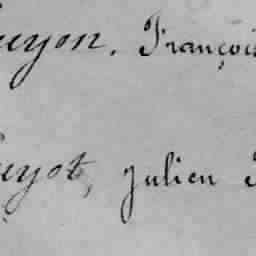 uyon, François
uyot, Julien